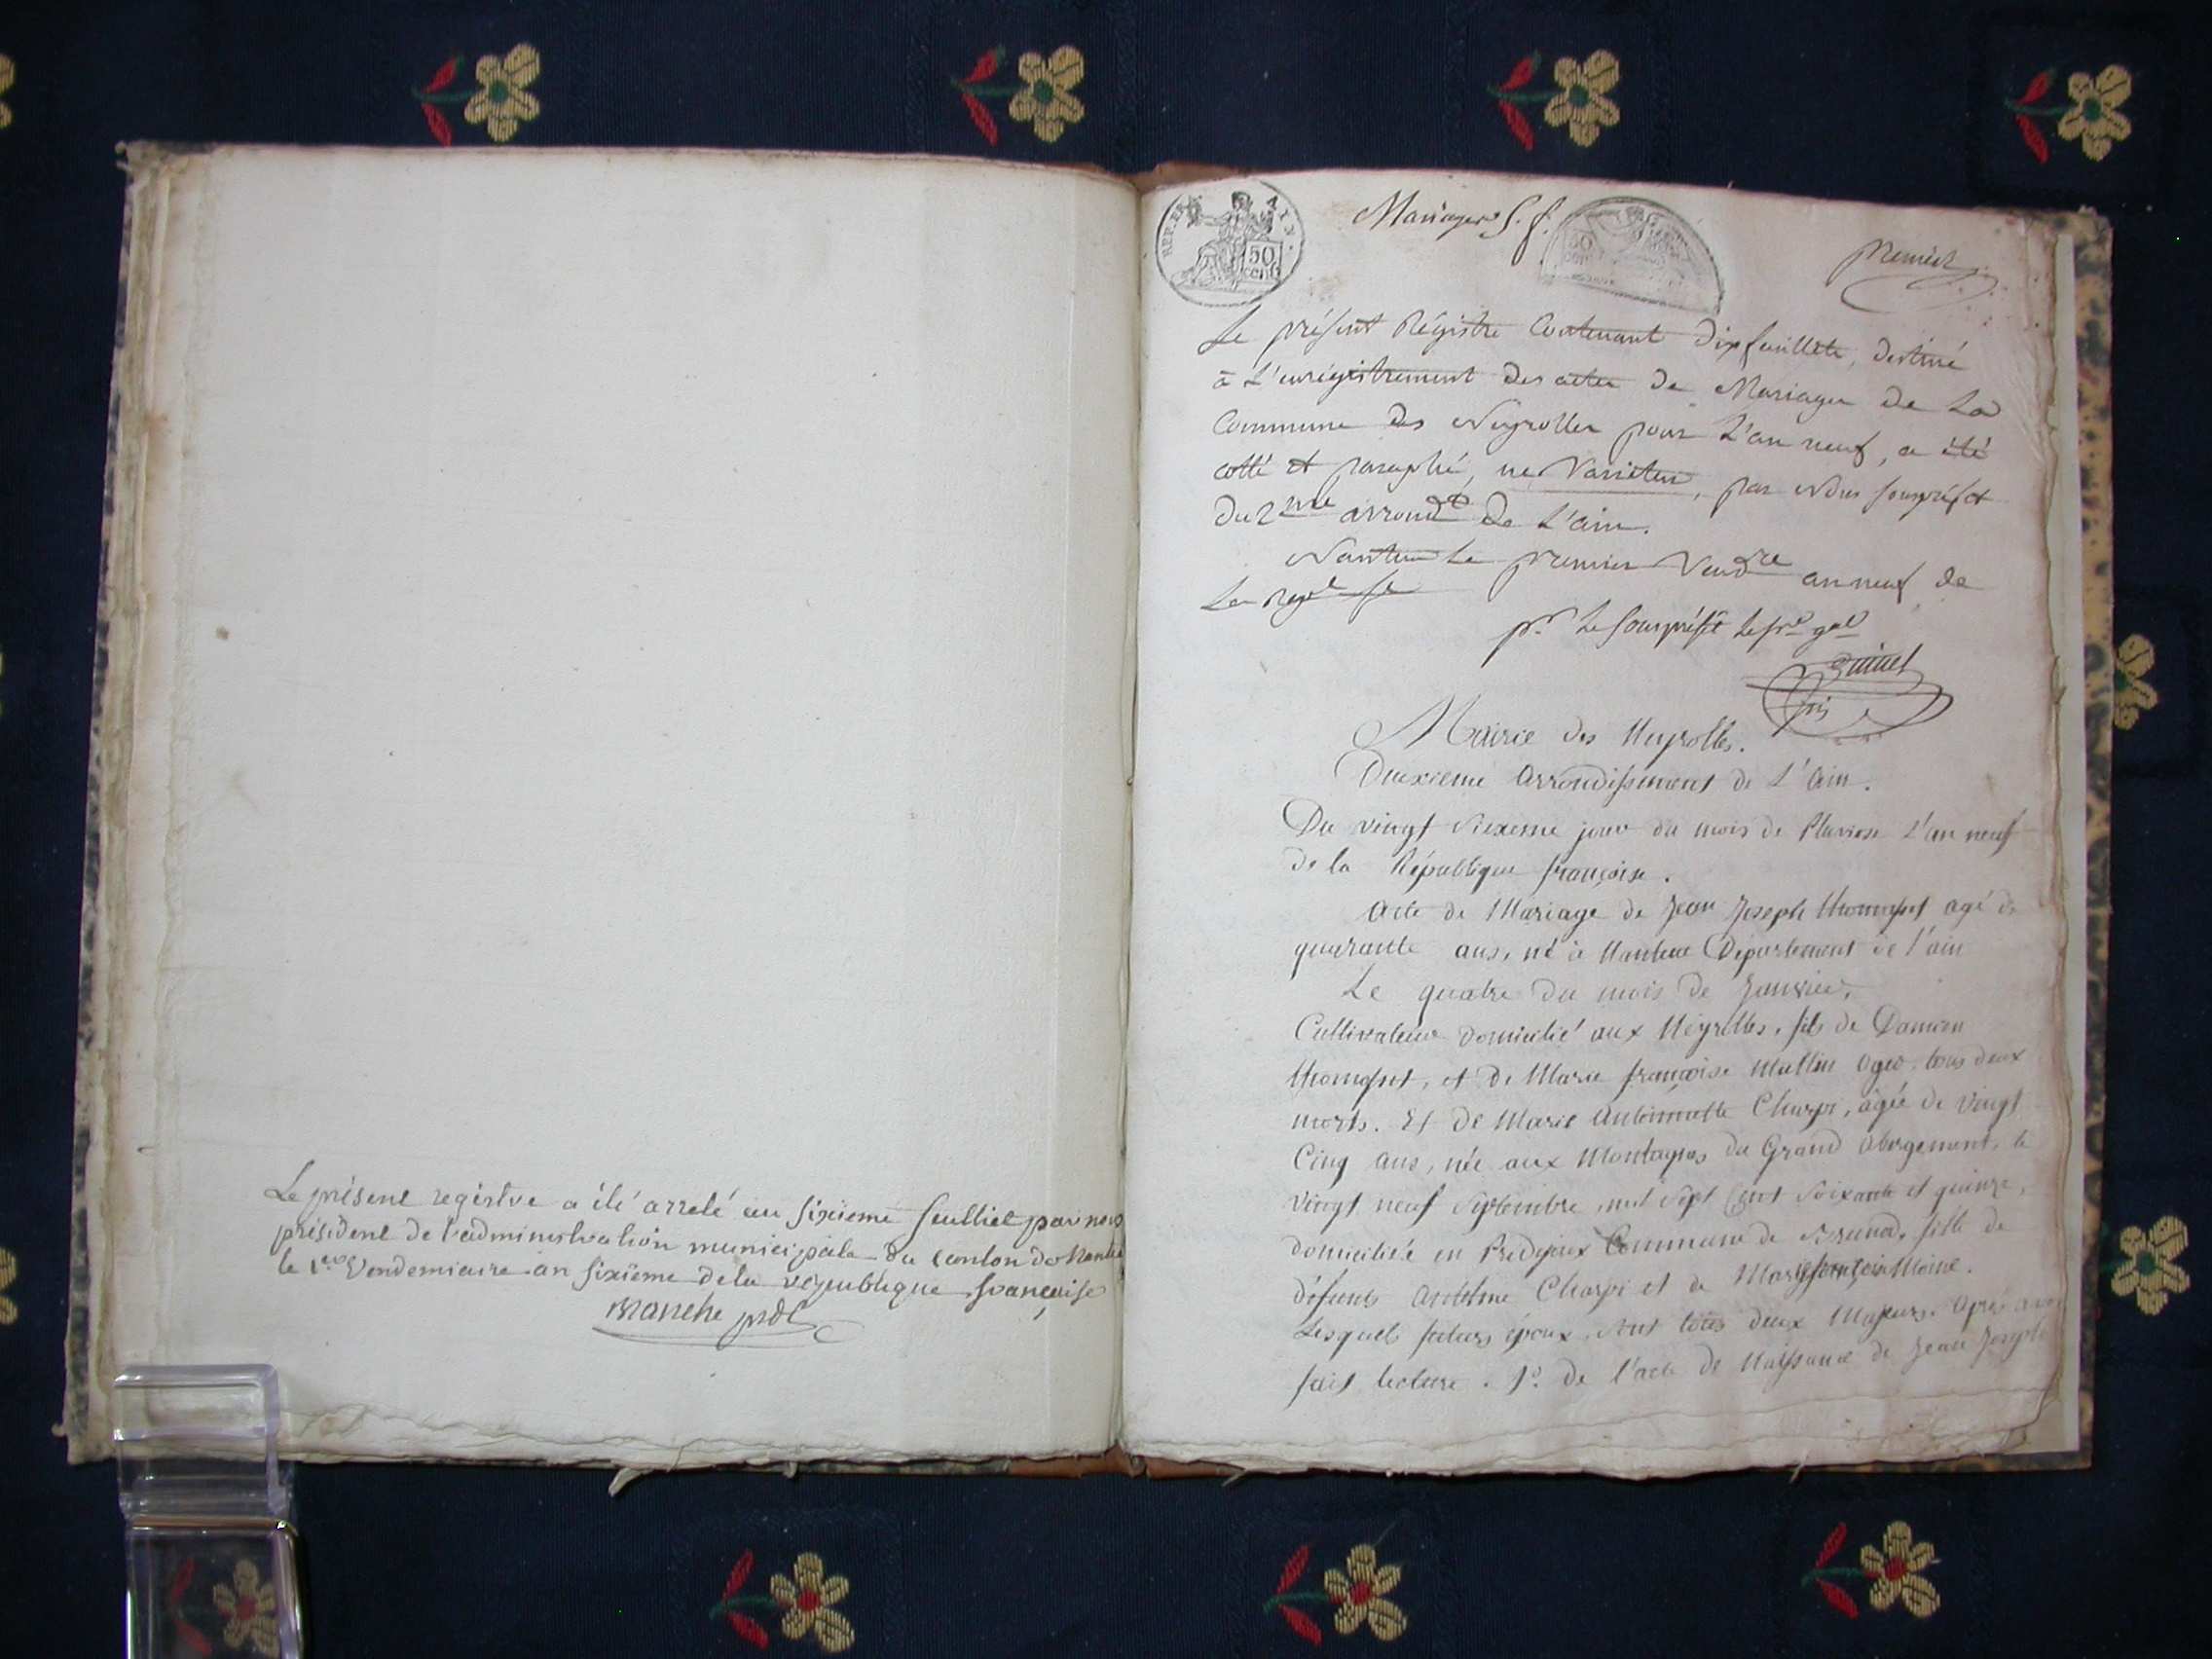 Le présent registre a été arreté au sixieme feulliet par nous
président de l'administration municipale du canton de Nantu
le 1er Vendemiaire an sixieme de la republique françoise
prdt
REP. FRA
50
cent.
Mariages
50
premier
Le présent Régistre Contenant dix feuillets, destiné
à L'enrégistrement des actes de Mariages de La
Commune des Neyrolles pour L'an neuf, a été
cotté et paraphé, ne Varietur, par Nous souspréfet
du 2me arrondt de L'ain.
Nantua Le premier Vendre an neuf de
La Repe fse
pr. Le souspréft le sre gal
Mairie des Neyrolles.
Deuxieme Arrondissement de L'Ain.
Du vingt Sixeme jour du mois de Pluviose L'an neuf
de la République françoise.
Acte de Mariage de Jean Joseph thomasset agé de
quarante ans, né à Nantua Département de l'ain
Le quatre du mois de Janvier,
Cultivateur domicilié aux Neyrolles, fils de Damien
thomasset, et de Marie françoise tous deux
morts. Et de Marie Antoinette Charpi, âgée de vingt
Cinq ans, née aux Montagnes du Grand Abergement, le
vingt neuf Septembre, mil Sept Cent Soixante et quinze,
domiciliée en Commune de fille de
défunts Antelme Charpi et de Marie françoise Moine.
Lesquels futurs époux, sont tous deux Majeurs. Après avoir
fait lecture. 1º. de l'acte de Naissance de Jean Joseph